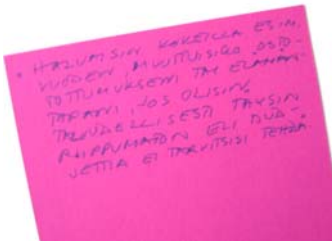 • HALUAISIN KOKEILLA ESIM.
VUODEN MUUTTUISIKO OSTO-
TOTTUMUKSENI TAI ELÄMÄN-
TAPANI, JOS OLISIN
TALOUDELLISESTI TÄYSIN
RIIPPUMATON ELI BUD-
JETTIA EI TARVITSISI TEHDÄ